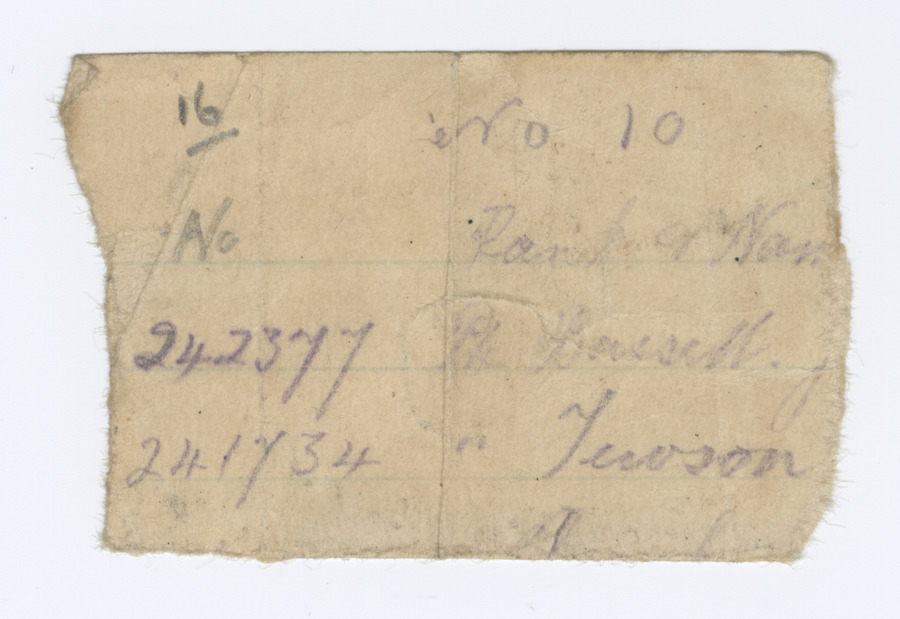 16 No 10
No Rank & Nam
242377 Pte Bassett. J
241734 " Tewson